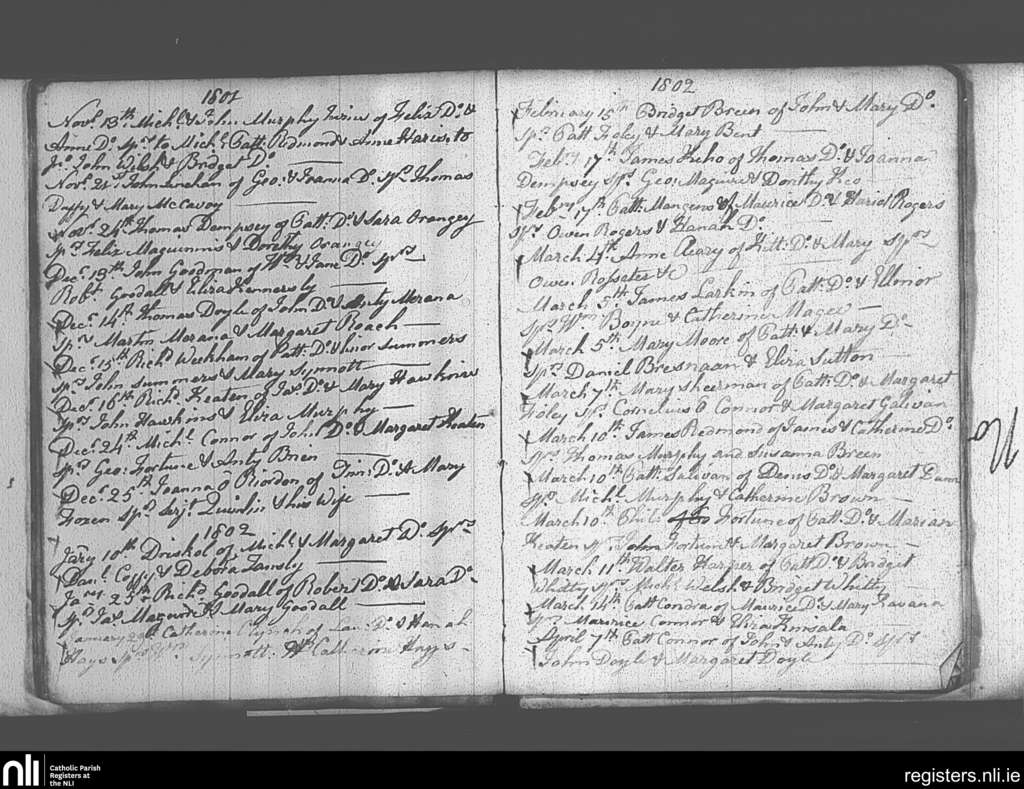 1801
Novr. 13th Michl. & Jno. Murphy Twins of Felix Do. &
Anne Do. Sprs. to Michl. Patt. Redmond & Anne Harris, to
Jno. John Welsh & Bridget Do.
Novr. 21st John of Geo. & Joanna Do. Sprs. Thomas
Duffy & Mary McCavoy
Novr. 24th Thomas Dempsey of Patt. Do. & Sara Orangey
Sprs. Felix Maguinnis & Dorothy Orangey
Decr. 13th John Goodman of Wm. & Jane Do. Sprs.
Robt. Goodall & Eliza
Decr. 14th Thomas Doyle of John Do. & Anty Morana
Sprs. Martin Morana & Margaret Roach
Decr. 15th Richd. Weekham of Patt. Do. & Elinor Summers
Sprs. John Summers & Mary Synnott
Decr. 16th Richd. Keaten of Jas. Do. & Mary Hawkins
Sprs. John Hawkins & Eliza Murphy
Decr. 24th Michl. Connor of John Do. & Margaret Keaten
Sprs. Geo. Fortune & Anty Brien
Decr. 25th Joanna O Riordon of Do. & Mary
Fozen Sprs. Serjt. Quinlin & his Wife
1802
Jary. 10th Driskol of Michl. & Margaret Do. Sprs.
Danl. Coffy & Debora
Jary. 23rd Richd. Goodall of Robert Do. & Sara Do.
Sprs. Jas. Maguire & Mary Goodall
January Catherine of Do. & Hanah
Hays Sprs. Wm. Synnott. & Catherine Hays
1802
February 15th Bridget Breen of John & Mary Do.
Sprs. Patt Foley & Mary Bent
Feby. 17th James Keho of Thomas Do. & Joanna
Dempsey Sprs. Geo. Maguire & Dorothy Keo
Feby. 17th Patt. Mangens of Maurice Do. & Hariot Rogers
Sprs. Owen Rogers & Hanah Do.
March 4th Anne Cleary of Patt. Do. & Mary Sprs.
Owen Rossater &c
March 5th James Larkin of Patt. Do. & Ellinor
Sprs. Wm. Boyne & Catherine Magee
March 5th Mary Moore of Patt & Mary Do.
Sprs. Daniel Bresnaan & Eliza Sutton
March 7th Mary Sheerman of Patt. Do. & Margaret
Foley Sprs. Cornelius O Connor & Margaret Galivan
March 10th James Redmond of James & Catherine Do.
Sprs. Thomas Murphy and Susanna Breen
March 10th Patt. Salivan of Denis Do. & Margaret Dunn
Sprs. Michl. Murphy & Catherine Brown
March 10th Fortune of Patt. Do. & Marian
Keaten Sprs. John Fortune & Margaret Brown
March 11th Walter Harper of Patt Do. & Bridget
Whitty Sprs. Michl. Welsh & Bridget Whitty
March 14th Patt Condra of Maurice Do. & Mary Kavana
Sprs. Maurice Connor & Eliza Kinsala
April 7th Patt Connor of John & Anty Do. Sprs.
John Doyle & Margaret Doyle
nli
Catholic Parish
Registers at
the NLI
registers.nli.ie